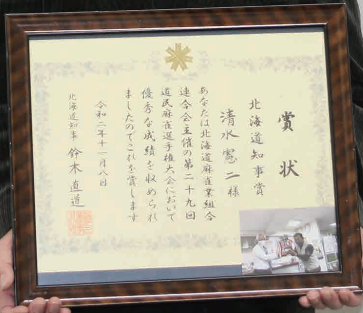 賞状
北海道知事賞
清水憲二様
あなたは北海道麻雀業組合
連合会主催の第二十九回
道民麻雀選手権大会において
優秀な成績を収められ
ましたのでこれを賞します
令和二年十一月八日
北海道知事 鈴木直道